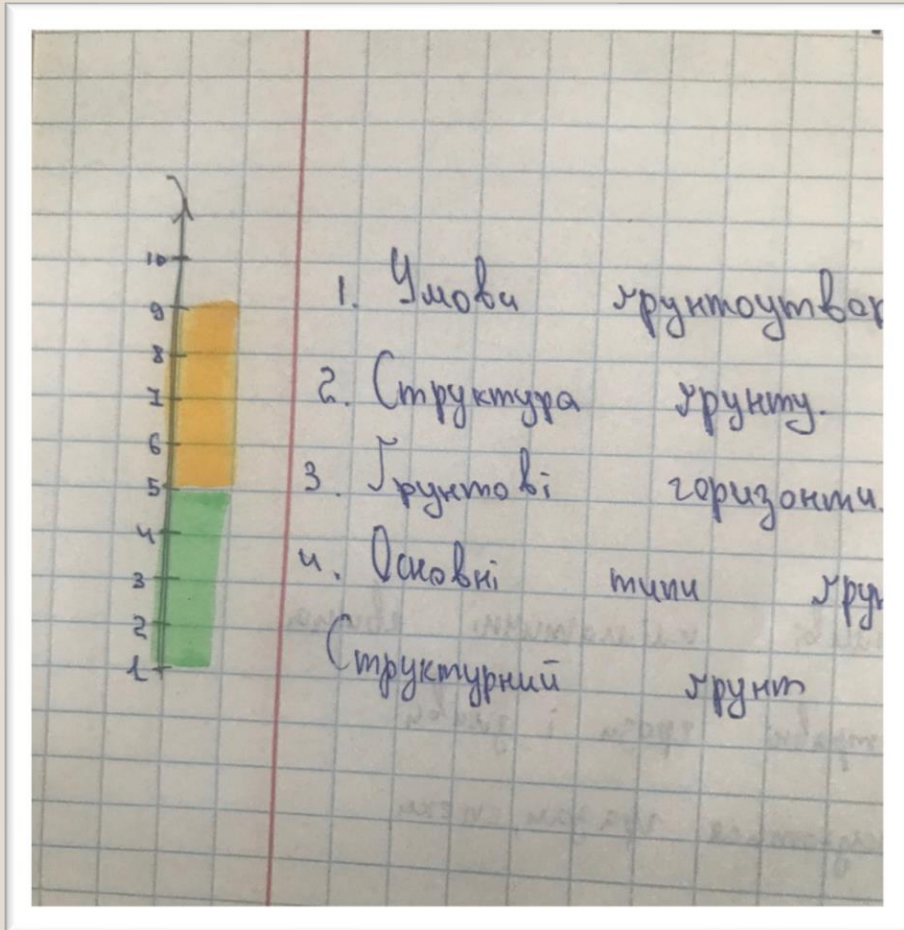 10
9
8
7
6
5
4
3
2
1
1. Умови ґрунтоутвор
2. Структура ґрунту.
3. Ґрунтові горизонти.
4. Основні типи ґрун
Структурний ґрунт